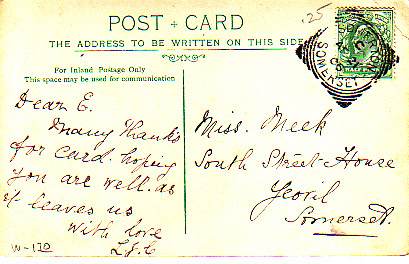 .25
POST + CARD
THE ADDRESS TO BE WRITTEN ON THIS SIDE
For Inland Postage Only
This space may be used for communication
Dear E.
Many Thanks
for card. hoping
you are well. as
it leaves us
with love
Miss. Meek
South Street House
Yeovil
Somerset.
SOMERSET
HALF
W-170